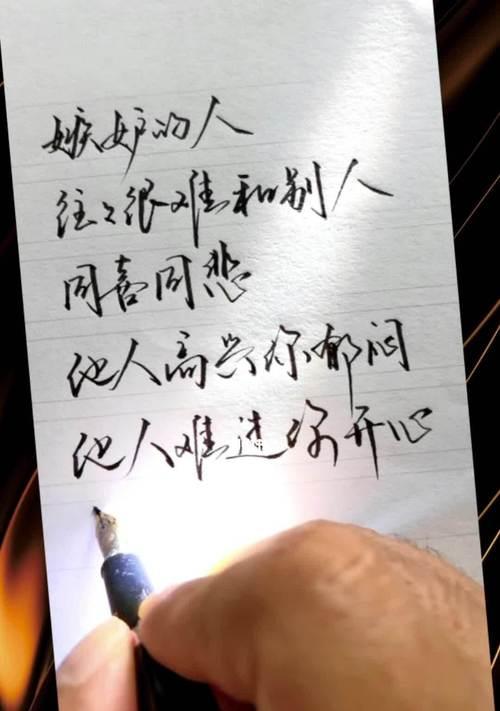 嫉妒的人
往々很难和别人
同喜同悲
他人高兴你郁闷
他人难过你开心